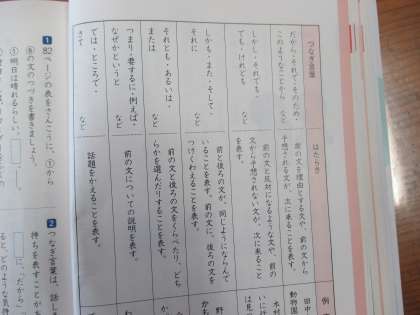 つなぎ言葉
はたらき
例
だから・それで・そのため・
このようなことから　など
前の文を理由とする文や、前の文から
予想される文が、次に来ることを表す。
しかし・それでも・
でも・けれども　など
前の文と反対になるような文や、前の
文から予想されない文が、次に来ること
を表す。
しかも・また・そして・
それに　など
前と後ろの文が、同じようにならんで
いることを表す。前の文に、後ろの文を
つけくわえることを表す。
それとも・あるいは・
または　など
前の文と後ろの文をくらべたり、どち
らかを選んだりすることを表す。
つまり・要するに・例えば・
なぜかというと　など
前の文についての説明を表す。
では・ところで・
さて　など
話題をかえることを表す。
1
82ページの表をさんこうに、①から
⑥の文のつづきを書きましょう。
①明日は晴れるらしい。
2
つなぎ言葉は、話し
持ちを表すことが
に「だから」